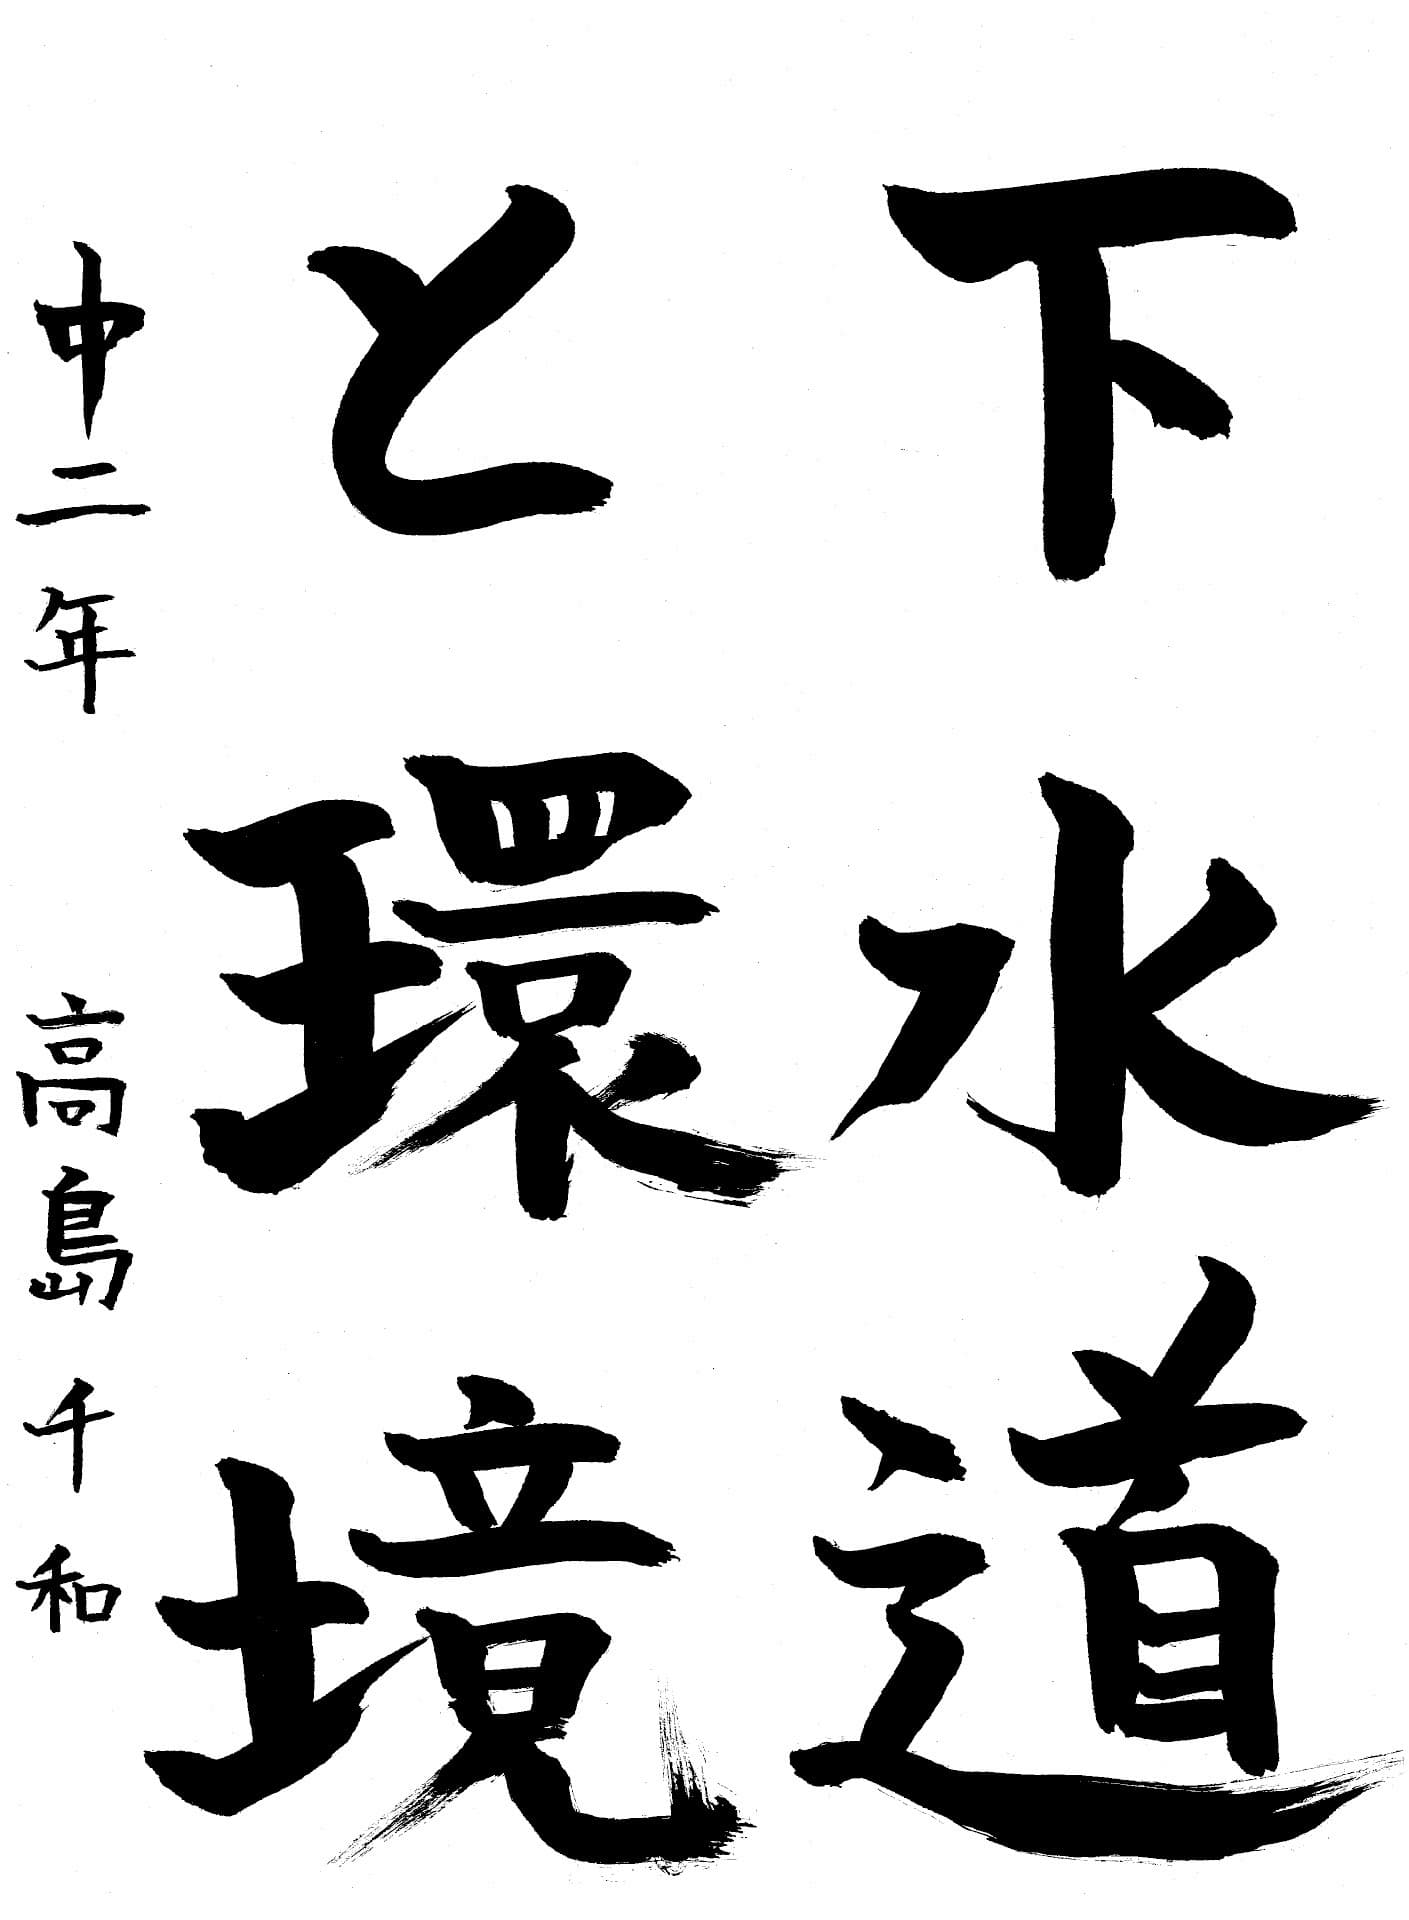 下水道
と環境
中二年 高島千和